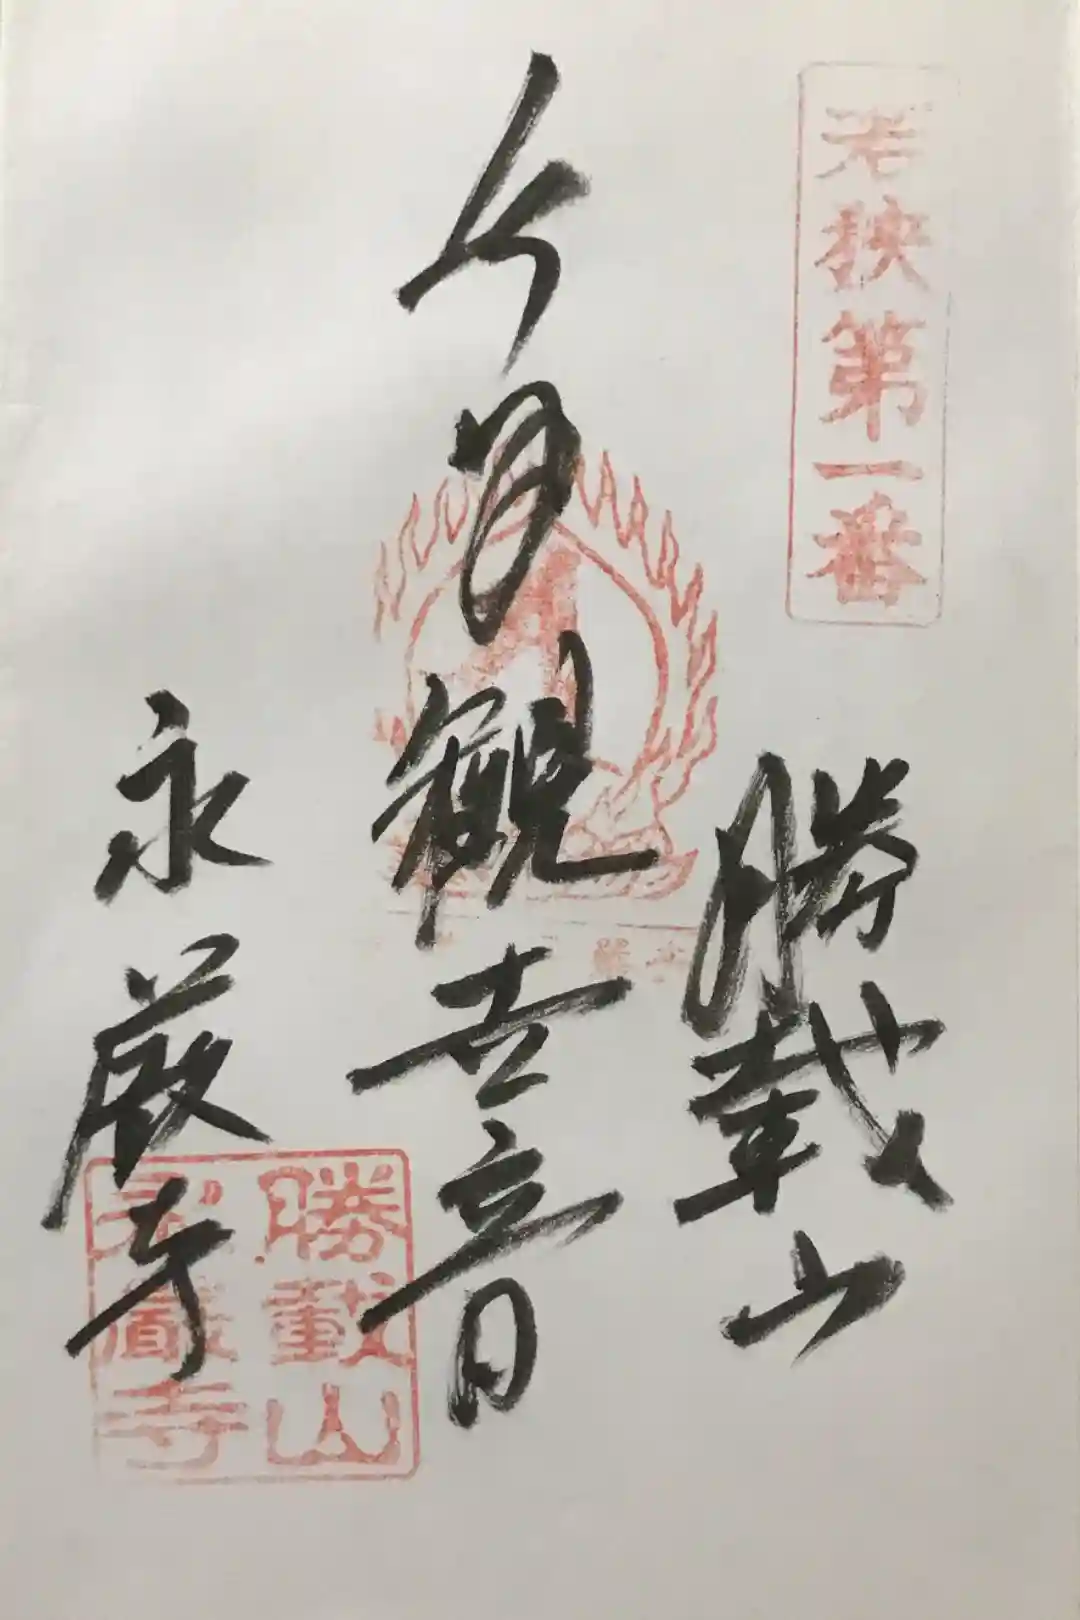 若狭第一番
勝載山
觀世音
永厳寺
勝載山
永巖寺